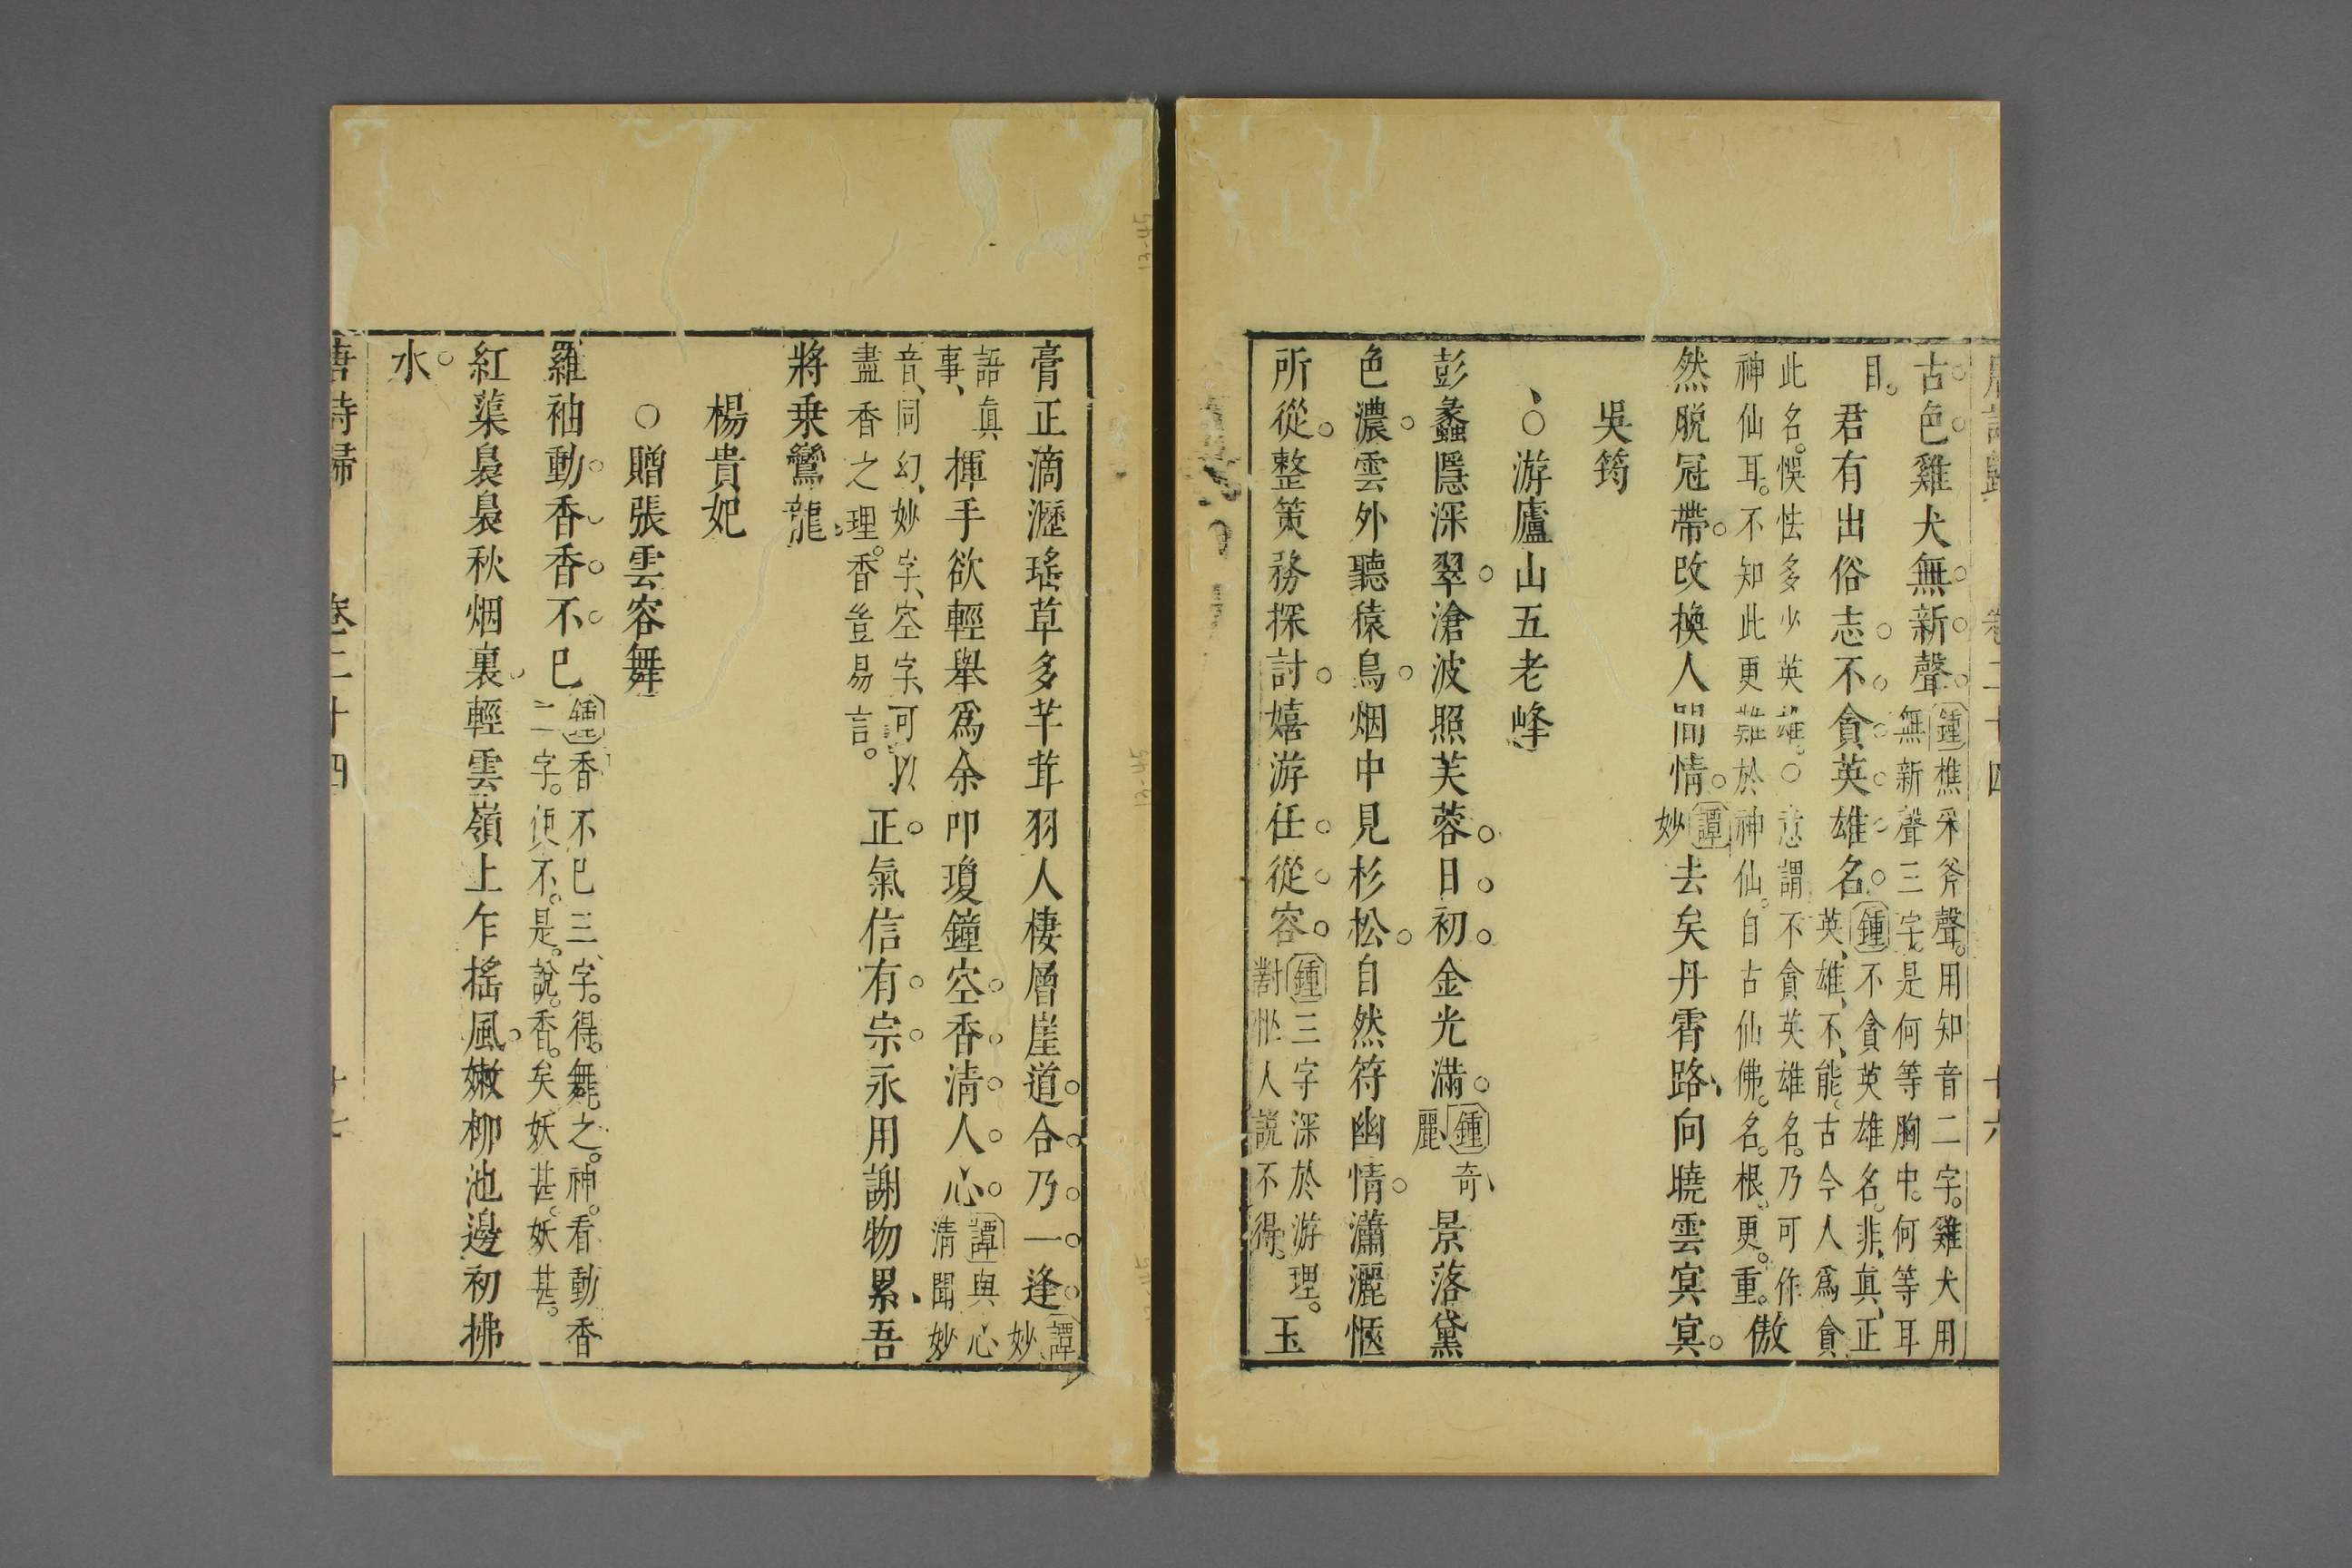 唐詩歸 卷二十四 十六
古色雞犬無新聲鍾樵采斧聲用知音二字雞犬用
無新聲三字是何等胸中何等耳
目君有出俗志不貪英雄名鍾不貪英雄名非真正
英雄不能古今人為貪
此名悞怯多少英雄○意謂不貪英雄名乃可作
神仙耳不知此更難於神仙自古仙佛名根更重傲
然脫冠帶改換人間情譚妙去矣丹霄路向曉雲冥冥
吳筠
○游廬山五老峰
彭蠡隱深翠滄波照芙蓉日初金光滿鍾奇麗景落黛
色濃雲外聽猿鳥烟中見杉松自然符幽情瀟灑愜
所從整策務探討嬉游任從容鍾三字深於游理
對忙人說不得玉
膏正滴瀝瑤草多芊茸羽人棲層崖道合乃一逢譚妙
語真
事揮手欲輕舉為余叩瓊鐘空香清人心譚與心
清聞妙
音同幻妙字空字可以
盡香之理香豈易言正氣信有宗永用謝物累吾
將乗鸞龍
楊貴妃
○贈張雲容舞
羅袖動香香不已鍾香不已三字得舞之神看動香
二字便不是說香矣妖甚妖甚
紅蕖裊裊秋烟裏輕雲嶺上乍搖風嫩柳池邊初拂
水
唐詩歸 卷二十四 十七